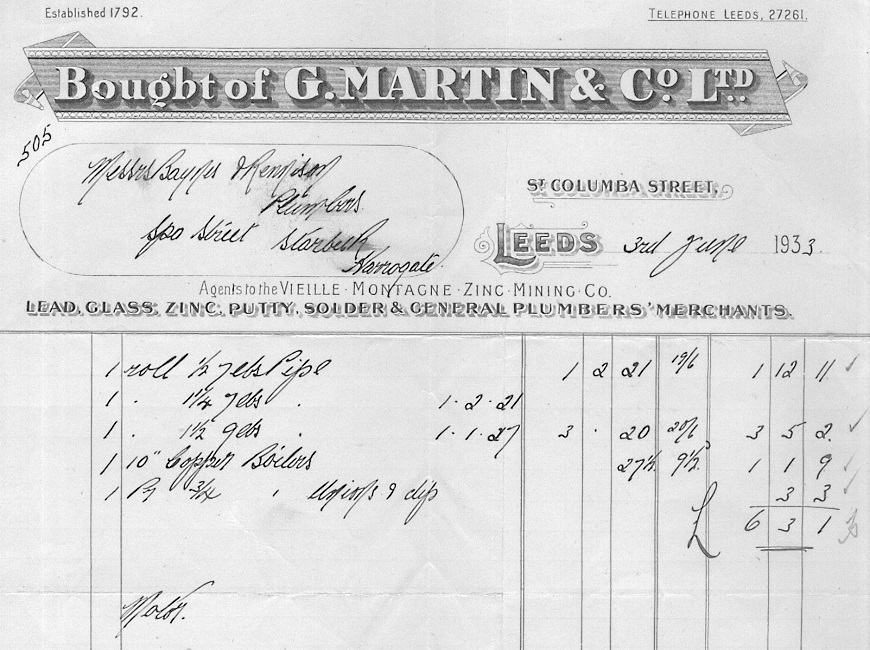 Established 1792.
TELEPHONE LEEDS, 27261.
Bought of G. MARTIN & Co. LTD
505
Messrs Baynes & Kennison
Plumbers
Spa Street Starbeck
Harrogate
ST COLUMBA STREET,
LEEDS 3rd June 1933.
Agents to the VIEILLE · MONTAGNE · ZINC · MINING · CO.
LEAD, GLASS, ZINC, PUTTY, SOLDER & GENERAL PLUMBERS' MERCHANTS.
1 roll 1/2 7lbs Pipe 1 2 21 19/6 1 12 11
1 . 1 1/4 7lbs . 1 . 2 . 21
1 . 1 1/2 9lbs . 1 . 1 . 27 3 . 20 20/6 3 5 2
1 10" Copper Boilers 27 1/2 9 1/2 1 1 9
1 Pr 3/4 " Unions & dip 3 3
£ 6 3 1
Motor.